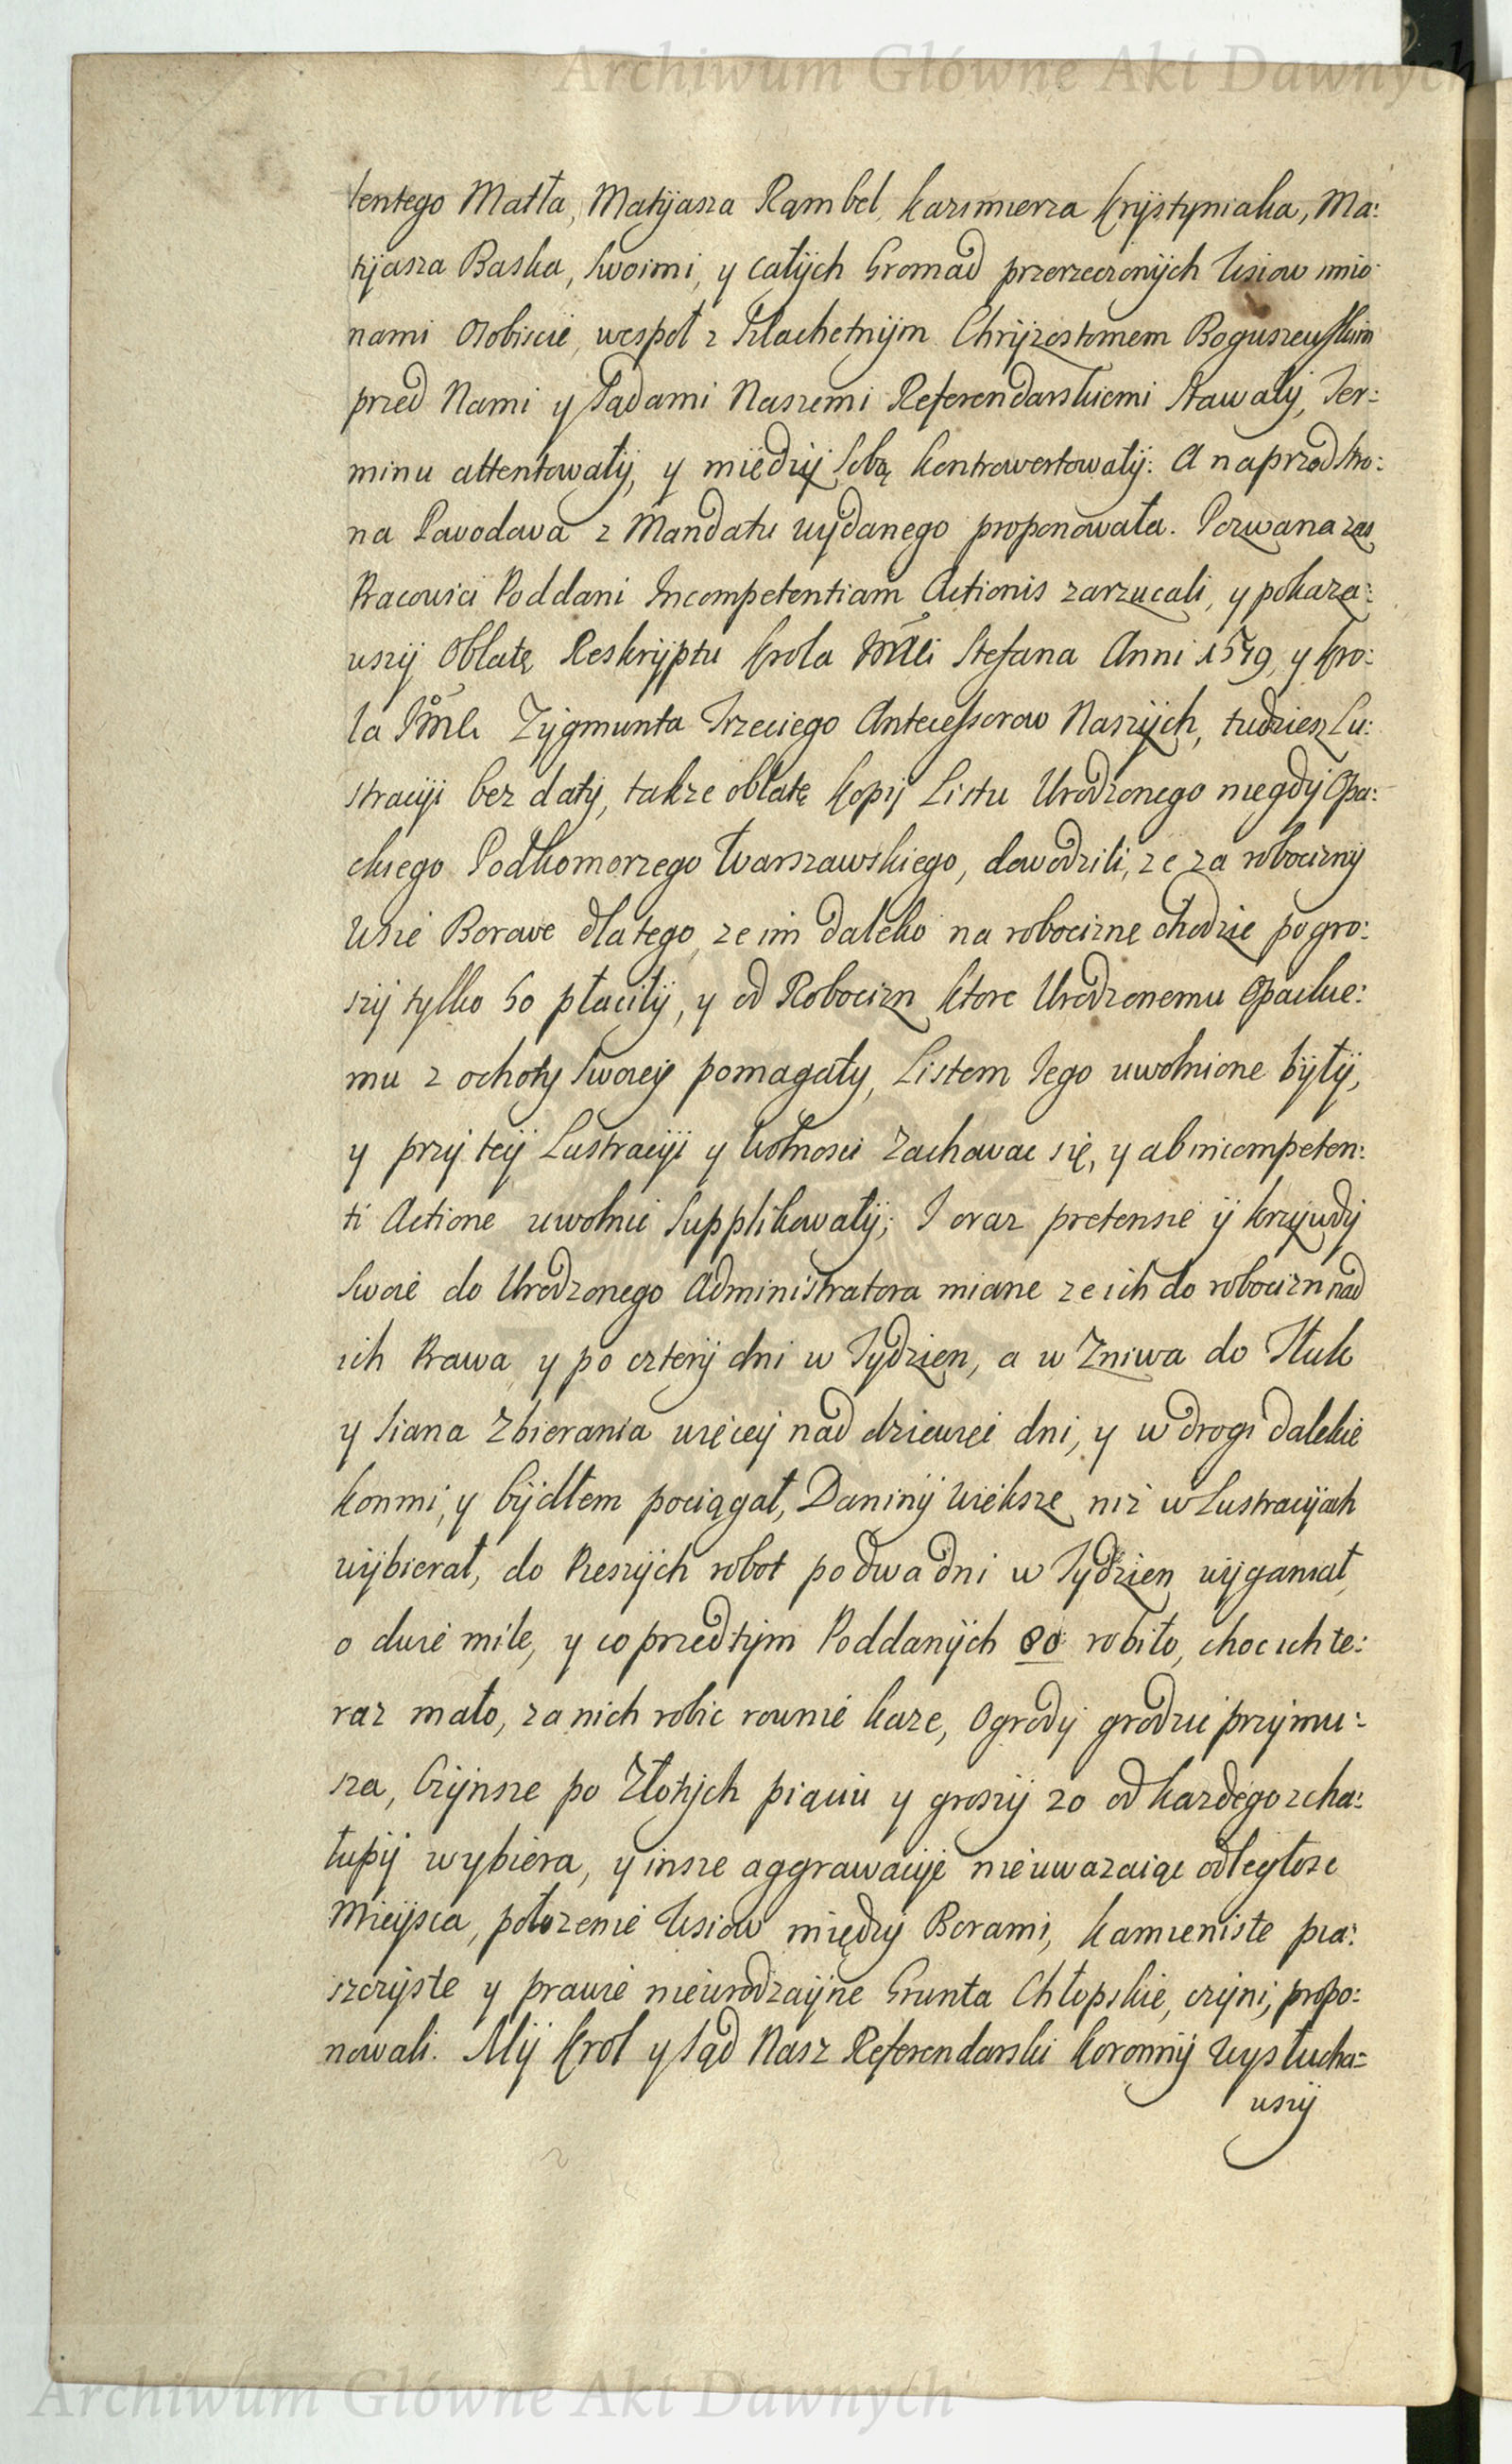 Archiwum Główne Akt Dawnych
lentego Matła, Matyjasza Rąmbel, Kazimierza Krystyniaka, Ma:
tyjasza Baska, swoimi, y całych Gromad przerzeczonych Wsiow imio:
nami osobiscie, wespoł z Szlachetnym Chryzostomem Boguszewskim
przed Nami y Sądami Naszemi Referendarskiemi stawały, Ter:
minu attentowały, y między sobą kontrowertowały: A naprzod stro:
na Powodowa z Mandatu wydanego proponowała. Pozwana zas
Pracowici Poddani Incompetentiam Actionis zarzucali, y pokaza:
wszy Oblatę Reskryptu Krola JMci Stefana Anni 1579, y Kro:
la JMci Zygmunta Trzeciego Antecessorow Naszych, tudziesz Lu:
stracyi bez daty, takze oblatę kopij Listu Urodzonego niegdy Opa:
ckiego Podkomorzego Warszawskiego, dowodzili, ze za robocizny
Wsie Borowe dlatego, ze im daleko na robociznę chodzic po gro:
szy tylko 50 płaciły, y od Robocizn ktore Urodzonemu Opackie:
mu z ochoty swoiey pomagały, Listem Jego uwolnione były,
y przy tey Lustracyi y Wolnosci zachowac się, y ab incompeten:
ti Actione uwolnic supplikowały; I oraz pretensie y krzywdy
swoie do Urodzonego Administratora miane ze ich do robocizn nad
ich Prawa y po cztery dni w Tydzien, a w Zniwa do Tłuk
y siana zbierania więcey nad dziewięc dni, y w drogi dalekie
konmi, y bydłem pociągał, Daniny większe niz w Lustracyach
wybierał, do Pieszych robot po dwa dni w Tydzien wyganiał,
o dwie mile, y co przedtym Poddanych 80 robiło, choc ich te:
raz mało, za nich robic rownie kaze, Ogrody grodzic przymu:
sza, Czynsze po Złotych pięciu y groszy 20 od kazdego z cha:
łupy wybiera, y insze aggrawacye nieuwazaiąc odległosc
Mieysca, połozenie Wsiow między Borami, kamieniste pia:
szczyste y prawie nieurodzayne Grunta Chłopskie, czyni, propo:
nowali. My Krol y Sąd Nasz Referendarski Koronny Wysłucha=
wszy
Archiwum Główne Akt Dawnych